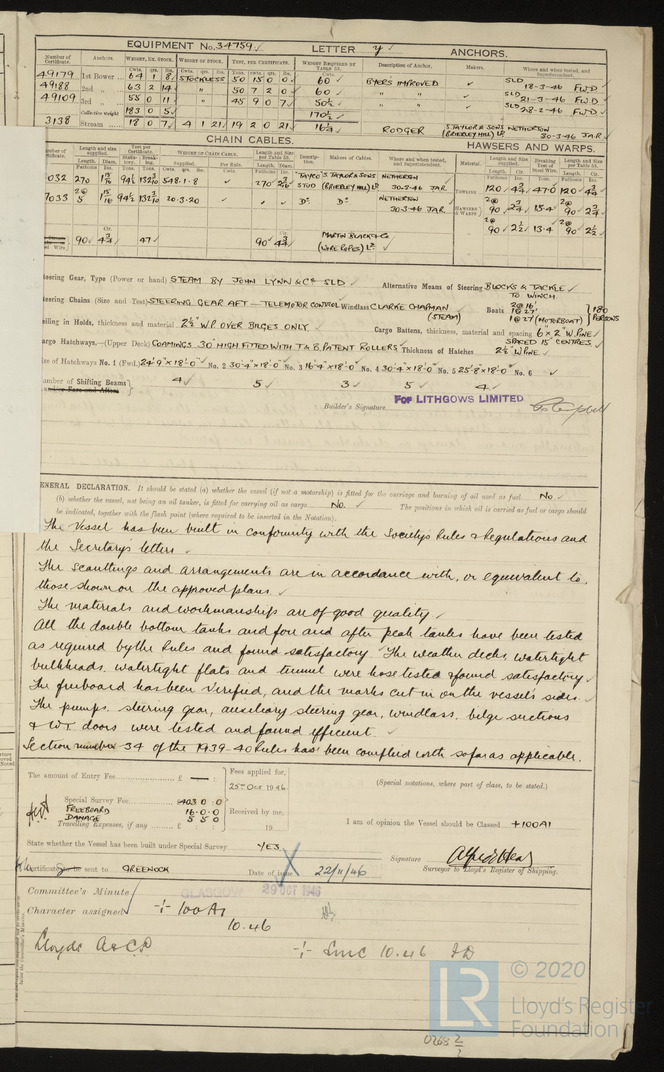 EQUIPMENT No. 34759 LETTER y ANCHORS.
Number of Certificate. Anchors. WEIGHT, EX. STOCK. WEIGHT OF STOCK. TEST, PER CERTIFICATE. WEIGHT REQUIRED BY TABLE 53. Description of Anchor. Makers. Where and when tested, and Superintendent.
49179 1st Bower 64 1 8 STOCKLESS 50 15 0 0 60 BYERS IMPROVED SLD 18-3-46 FWD
49188 2nd " 63 2 14 " 50 7 2 0 60 " " SLD 21-3-46 FWD
49109 3rd " 55 0 11 " 45 9 0 7 50½ " " SLD 28-2-46 FWD
Collective weight 183 0 5 170½
3138 Stream 18 0 7 4 1 21 19 2 0 21 16¼ RODGER S TAYLOR & SONS (BRIERLEY HILL) LD NETHERTON 30-3-46 JAR
CHAIN CABLES. HAWSERS AND WARPS.
032 270 548-1-8 270 STUD S TAYLOR & SONS (BRIERLEY HILL) LD NETHERTON 30-3-46 JAR TOWLINE 120 4¾ 47·0 120 4¾
7033 20-3-20 Do Do NETHERTON 30-3-46 JAR HAWSERS & WARPS 2@ 90 2¾ 15·4 2@ 90 2¾
2@ 90 2½ 13·4 2@ 90 2½
90 4¾ 47 90 4¾ MARTIN BLACK & Co (WIRE ROPES) LD
Steering Gear, Type (Power or hand) STEAM BY JOHN LYNN & Co SLD Alternative Means of Steering BLOCKS & TACKLE TO WINCH.
Steering Chains (Size and Test) STEERING GEAR AFT — TELEMOTOR CONTROL Windlass CLARKE CHAPMAN (STEAM) Boats 2@ 16' 1@ 27' 1@ 27 (MOTORBOAT) 180 PERSONS
Ceiling in Holds, thickness and material 2½" W.P. OVER BILGES ONLY Cargo Battens, thickness, material and spacing 6 x 2" W. PINE SPACED 15" CENTRES
Cargo Hatchways.—(Upper Deck) COAMINGS 30" HIGH FITTED WITH T & B PATENT ROLLERS Thickness of Hatches 2½" W. PINE
Size of Hatchways No. 1 (Fwd.) 24'-9" x 18'-0" No. 2 30'-4" x 18'-0" No. 3 16'-4" x 18'-0" No. 4 30'-4" x 18'-0" No. 5 25'-8" x 18'-0" No. 6
Number of Shifting Beams 4 5 3 5 4
Builder's Signature FOR LITHGOWS LIMITED
GENERAL DECLARATION. It should be stated (a) whether the vessel (if not a motorship) is fitted for the carriage and burning of oil used as fuel No.
(b) whether the vessel, not being an oil tanker, is fitted for carrying oil as cargo No. The positions in which oil is carried as fuel or cargo should
be indicated, together with the flash point (where required to be inserted in the Notation).
The vessel has been built in conformity with the Society's Rules & Regulations and
the Secretary's letters.
The scantlings and arrangements are in accordance with, or equivalent to,
those shown on the approved plans.
The materials and workmanship are of good quality.
All the double bottom tanks and fore and after peak tanks have been tested
as required by the Rules and found satisfactory. The weather decks, watertight
bulkheads, watertight flats and tunnel were hose tested & found satisfactory.
The freeboard has been verified, and the marks cut in on the vessel's sides.
The pumps, steering gear, auxiliary steering gear, windlass, bilge suctions
& W.T. doors were tested and found efficient.
Section number 34 of the 1939-40 Rules has been complied with so far as applicable.
The amount of Entry Fee £ — : Fees applied for,
25th OCT 1946 (Special notations, where part of class, to be stated.)
Special Survey Fee £ 403 : 0 : 0
FREEBOARD 16 - 0 - 0 Received by me,
DAMAGE 5 5 0
Travelling Expenses, if any £ : : 19
I am of opinion the Vessel should be Classed +100A1
State whether the Vessel has been built under Special Survey YES.
Signature Alfred Head
Surveyor to Lloyd's Register of Shipping.
Certificate to be sent to GREENOCK Date of issue 22/11/46
Committee's Minute GLASGOW 29 OCT 1946
Character assigned + 100A1
10.46
Lloyds A & CP + LMC 10.46 FD
LR © 2020
Lloyd's Register
Foundation
0265 2/2